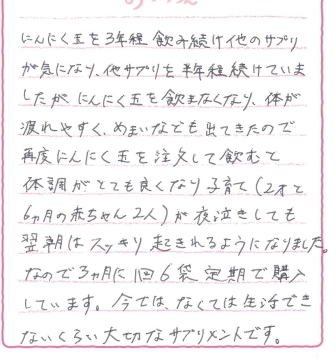 にんにく玉を3年程飲み続け他のサプリ
が気になり、他サプリを半年程続けていま
したがにんにく玉を飲まなくなり、体が
疲れやすく、めまいなども出てきたので
再度にんにく玉を注文して飲むと
体調がとても良くなり子育て(2才と
6ヵ月の赤ちゃん2人)が夜泣きしても
翌朝はスッキリ起きれるようになりました。
なので3ヵ月に1回6袋定期で購入
しています。今では、なくては生活でき
ないくらい大切なサプリメントです。